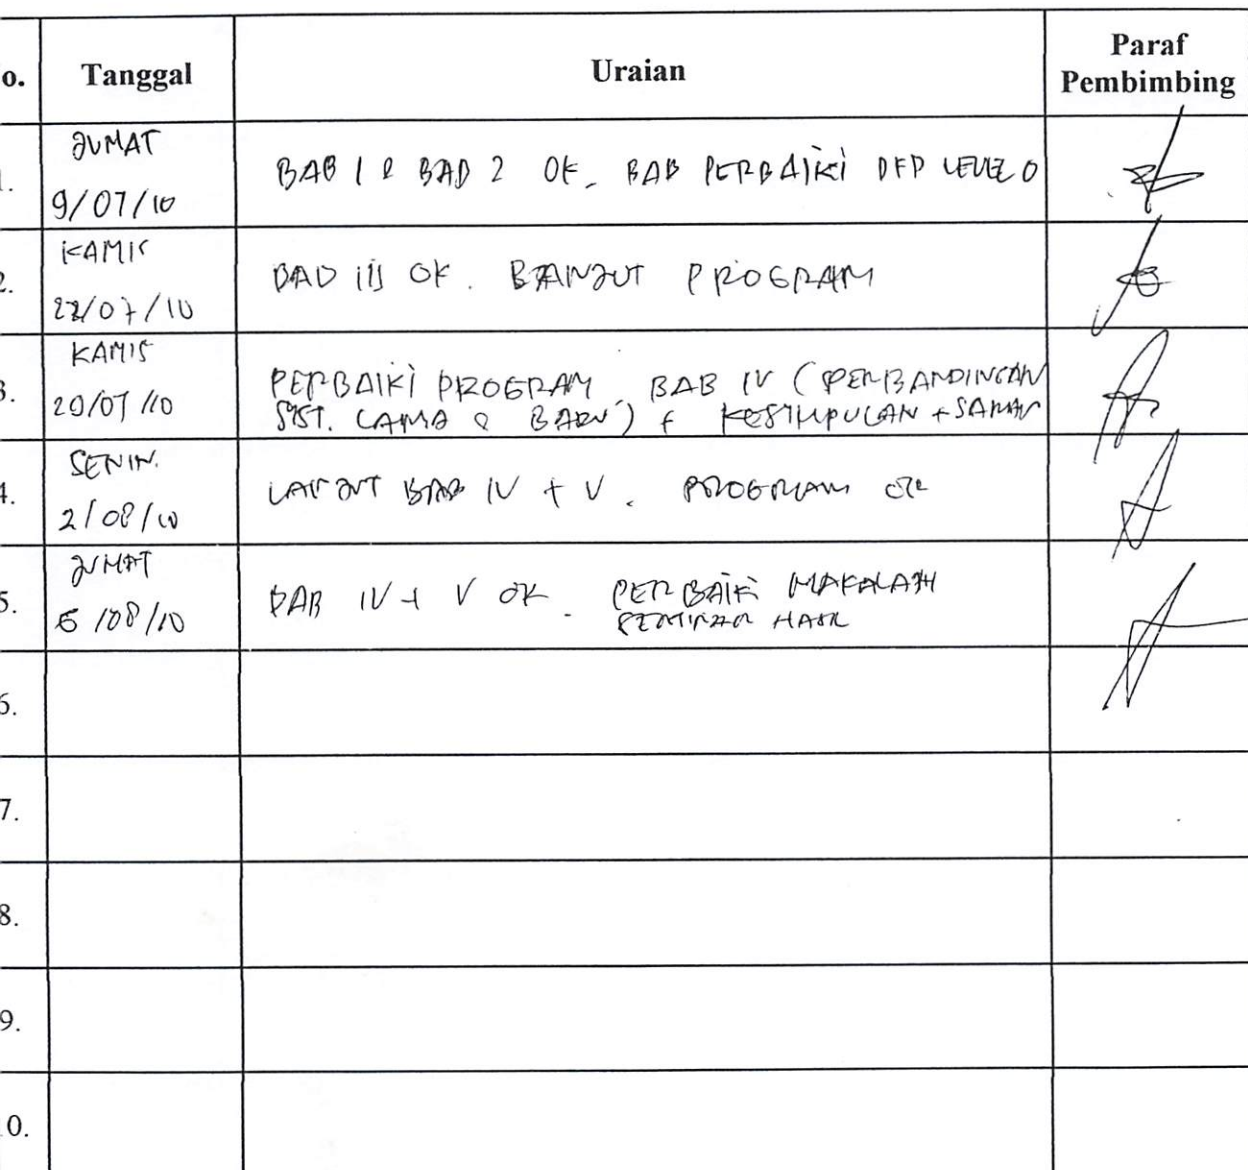 o. Tanggal Uraian Paraf
Pembimbing
1. JUMAT
9/07/10 BAB 1 & BAB 2 OK. BAB PERBAIKI DFD LEVEL 0
2. KAMIS
22/07/10 BAB III OK. PROGRAM
3. KAMIS
29/07/10 PERBAIKI PROGRAM. BAB IV (PERBANDINGAN
SIST. LAMA & BARU) + KESIMPULAN + SARAN
4. SENIN.
2/08/10 BAB IV + V. PROGRAM OK
5. JUMAT
6/08/10 BAB IV + V OK. PERBAIKI MAKALAH
SEMINAR HASIL
6.
7.
8.
9.
10.